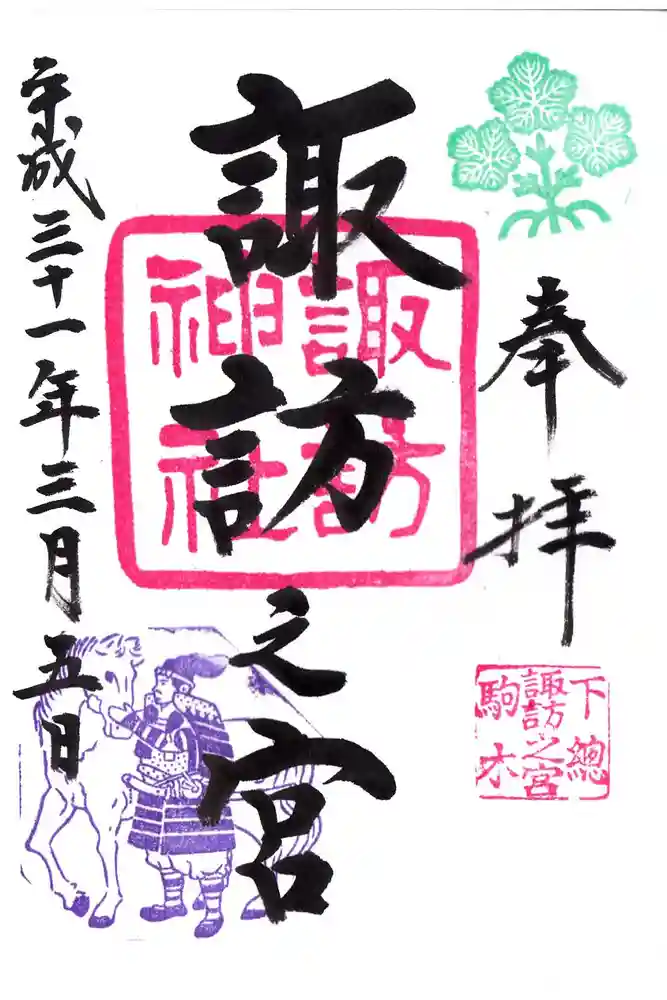 奉拝
下總
諏訪之宮
駒木
諏訪之宮
諏訪
神社
平成三十一年三月五日